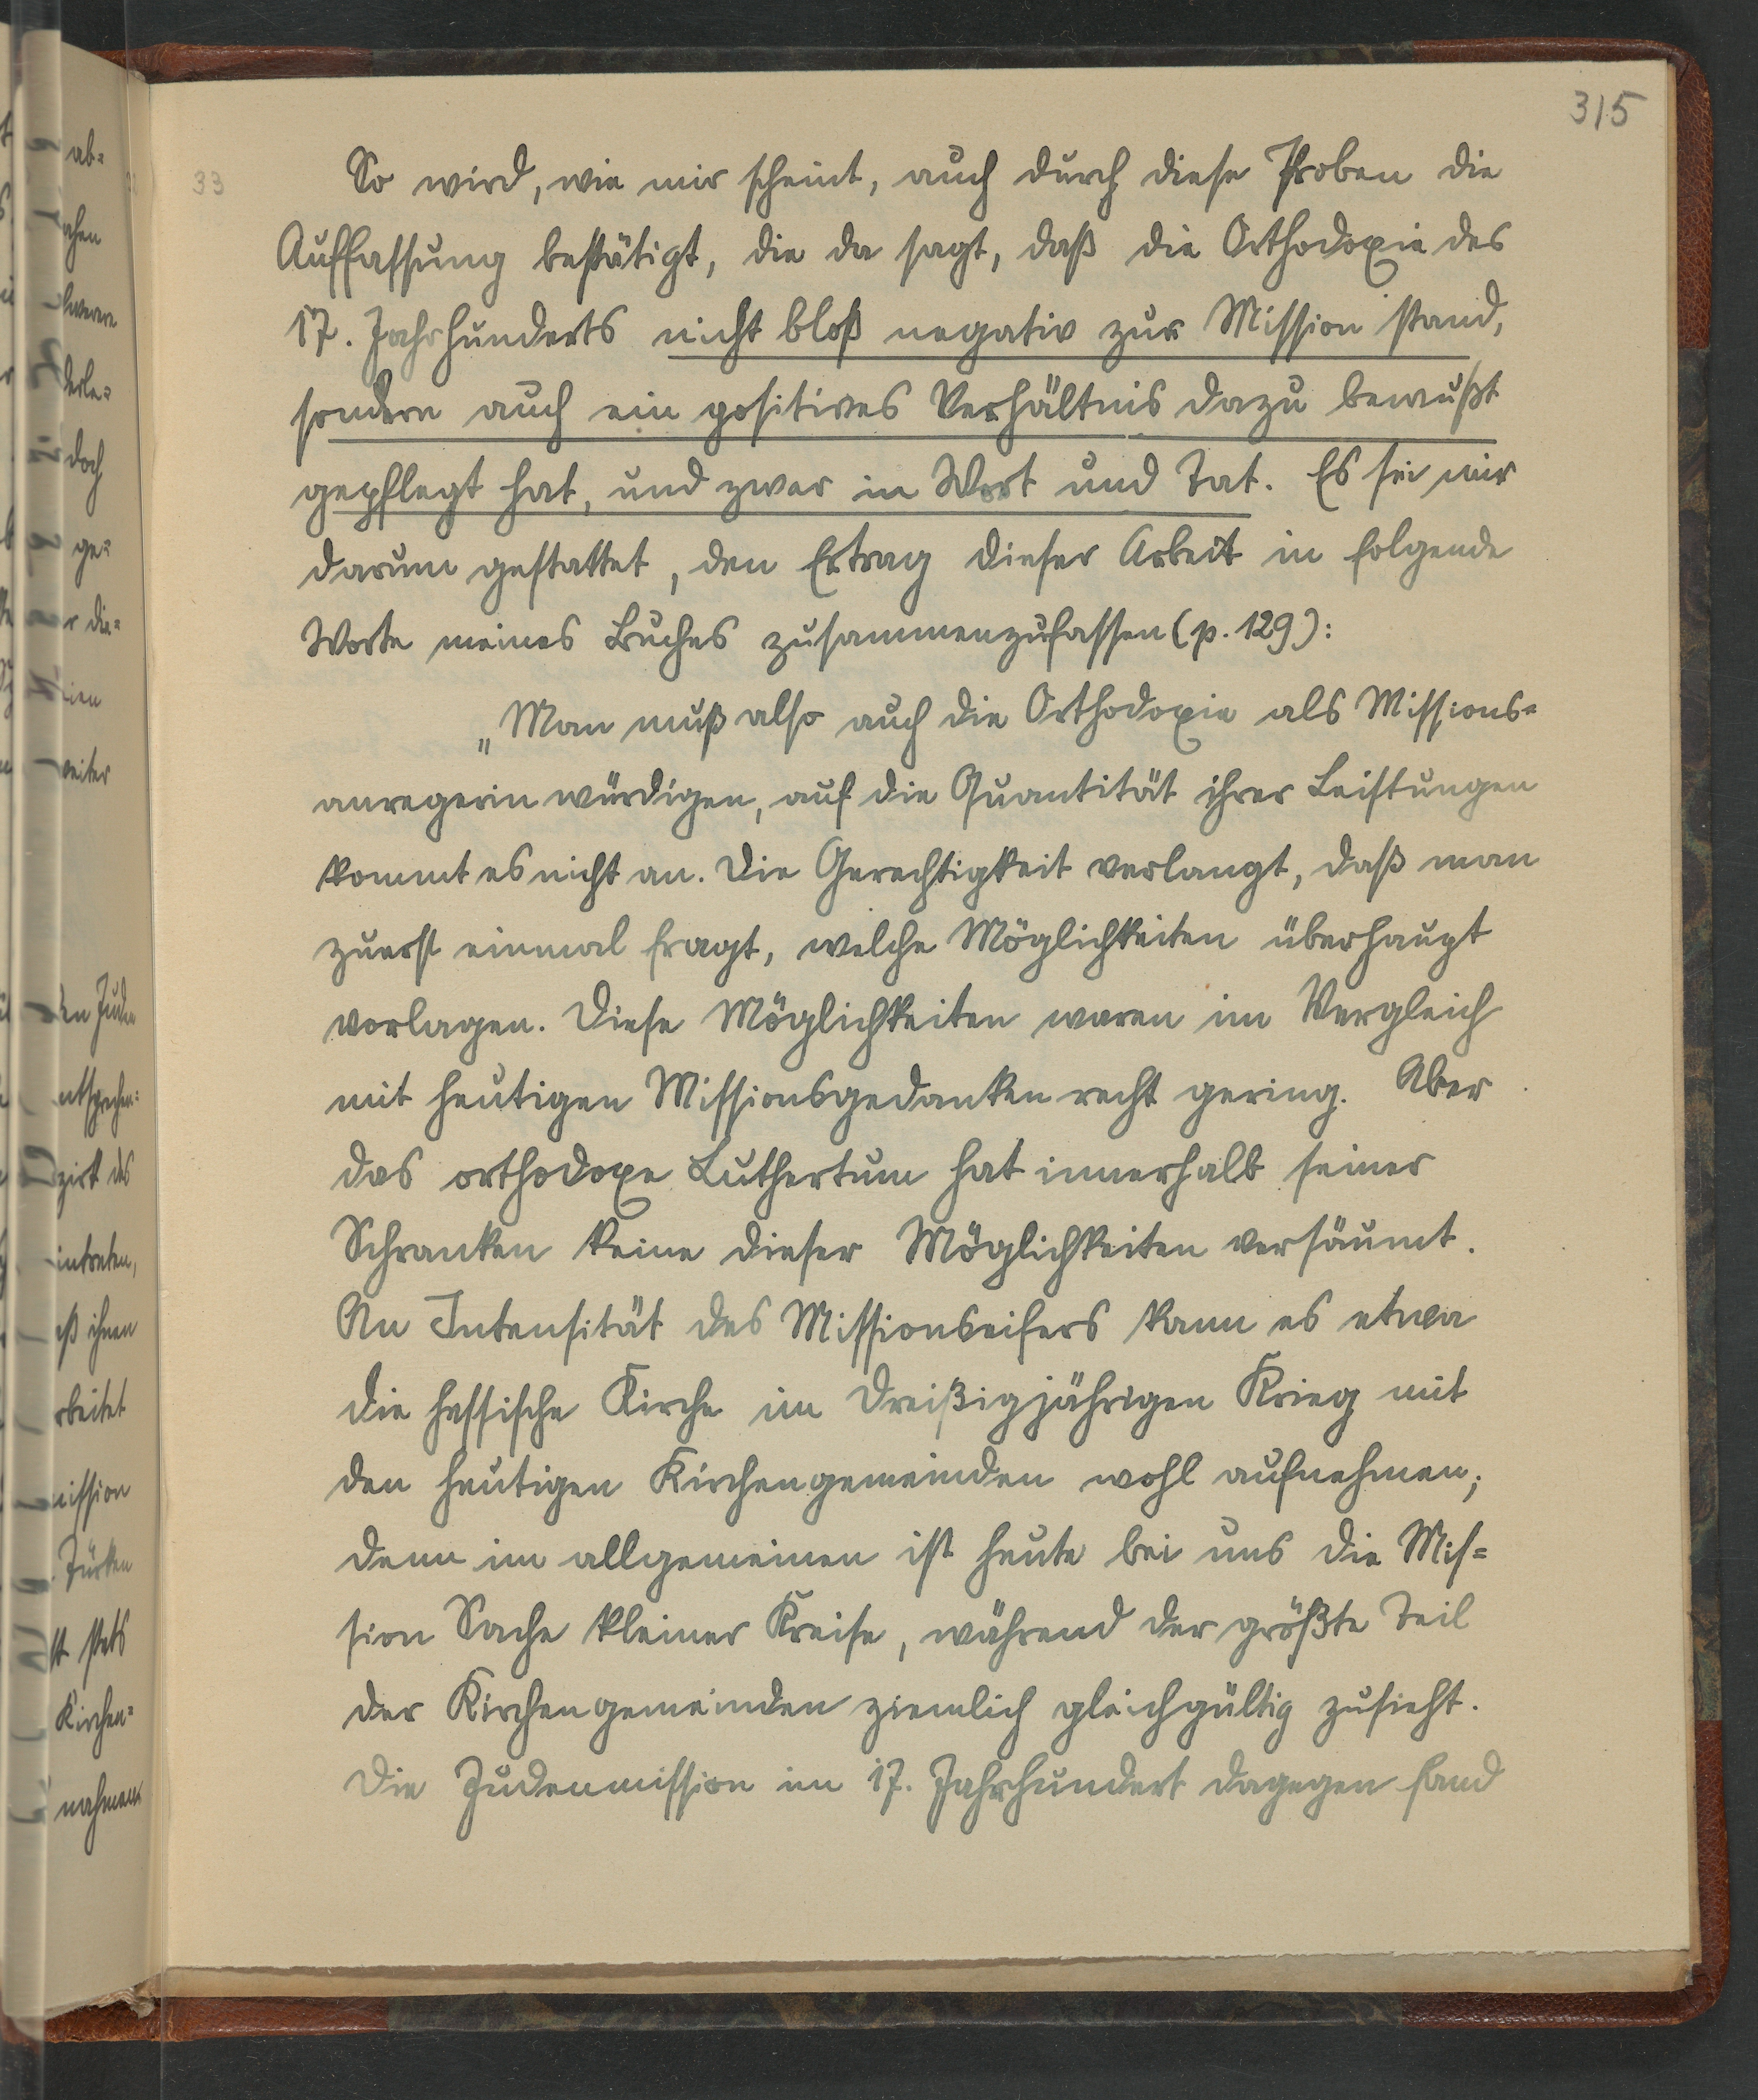 315
33
So wird, wie mir scheint, auch durch diese Proben die
Auffassung bestätigt, die da sagt, daß die Orthodoxie des
17. Jahrhunderts nicht bloß negativ zur Mission stand,
sondern auch ein positives Verhältnis dazu bewußt
gepflegt hat, und zwar in Wort und Tat. Es sei mir
darum gestattet, den Ertrag dieser Arbeit in folgende
Worte meines Buches zusammenzufassen (p. 129):
„Man muß also auch die Orthodoxie als Missions=
anregerin würdigen, auf die Quantität ihrer Leistungen
kommt es nicht an. Die Gerechtigkeit verlangt, daß man
zuerst einmal fragt, welche Möglichkeiten überhaupt
vorlagen. Diese Möglichkeiten waren im Vergleich
mit heutigen Missionsgedanken recht gering. Aber
das orthodoxe Luthertum hat innerhalb seiner
Schranken keine dieser Möglichkeiten versäumt.
An Intensität des Missionseifers kann es etwa
die hessische Kirche im Dreißigjährigen Krieg mit
den heutigen Kirchengemeinden wohl aufnehmen;
denn im allgemeinen ist heute bei uns die Mis=
sion Sache kleiner Kreise, während der größte Teil
der Kirchengemeinden ziemlich gleichgültig zusieht.
Die Judenmission im 17. Jahrhundert dagegen fand